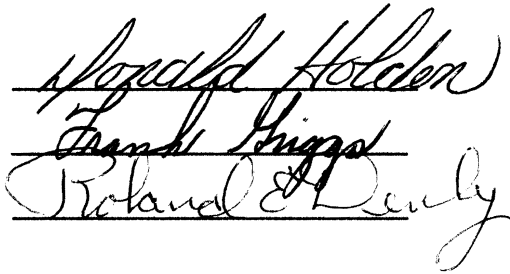 Donald Holden
Frank Griggs
Roland E Denby